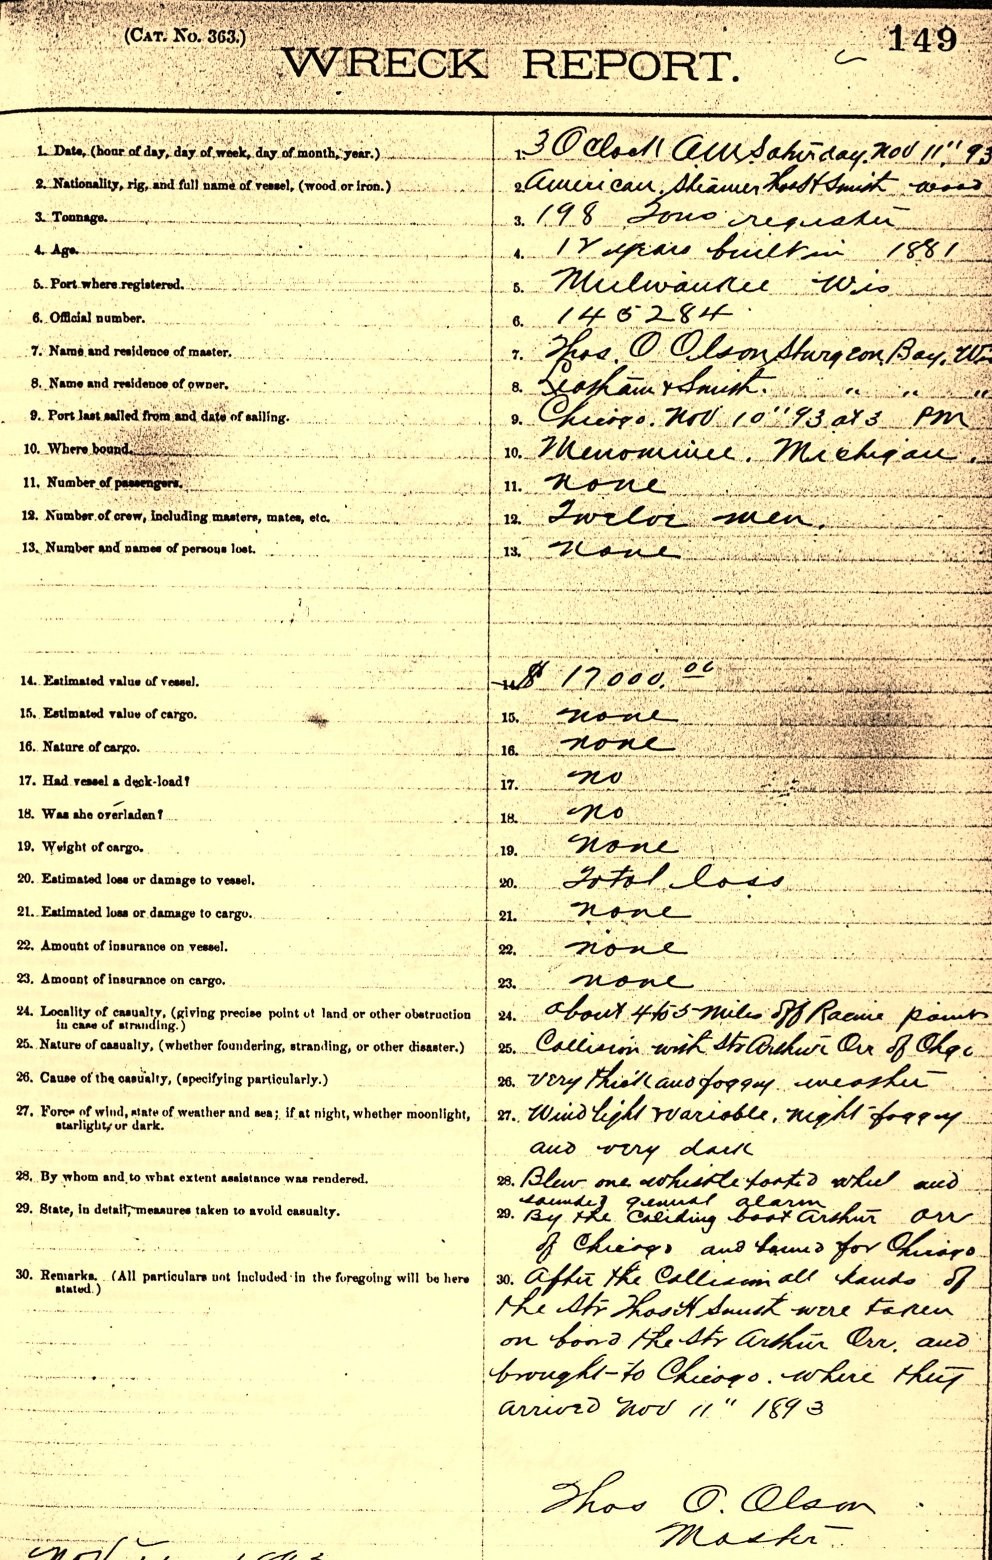 (CAT. No. 363.)
149
WRECK REPORT.
1. Date, (hour of day, day of week, day of month, year.) 1. 3 O Clock AM Saturday, Nov 11" 93
2. Nationality, rig, and full name of vessel, (wood or iron.) 2. American, Steamer Thos H Smith wood
3. Tonnage. 3. 198 Tons register
4. Age. 4. 12 years built in 1881
5. Port where registered. 5. Milwaukee Wis
6. Official number. 6. 145284
7. Name and residence of master. 7. Thos. O Olson, Sturgeon Bay, Wis
8. Name and residence of owner. 8. Leatham & Smith. " " "
9. Port last sailed from and date of sailing. 9. Chicago. Nov 10" 93 at 3 PM
10. Where bound. 10. Menominee. Michigan.
11. Number of passengers. 11. none
12. Number of crew, including masters, mates, etc. 12. Twelve men.
13. Number and names of persons lost. 13. none
14. Estimated value of vessel. 14. $ 17000.00
15. Estimated value of cargo. 15. none
16. Nature of cargo. 16. none
17. Had vessel a deck-load? 17. no
18. Was she overladen? 18. no
19. Weight of cargo. 19. none
20. Estimated loss or damage to vessel. 20. Total loss
21. Estimated loss or damage to cargo. 21. none
22. Amount of insurance on vessel. 22. none
23. Amount of insurance on cargo. 23. none
24. Locality of casualty, (giving precise point of land or other obstruction 24. about 4 to 5 miles off Racine point
in case of stranding.)
25. Nature of casualty, (whether foundering, stranding, or other disaster.) 25. Collision with Str Arthur Orr of Chgo
26. Cause of the casualty, (specifying particularly.) 26. very thick and foggy weather
27. Force of wind, state of weather and sea; if at night, whether moonlight, 27. Wind light & variable, night foggy
starlight, or dark.
and very dark
28. By whom and to what extent assistance was rendered. 28. Blew one whistle ported wheel and
sounded general alarm
29. State, in detail, measures taken to avoid casualty. 29. By the Coliding boat Arthur Orr
of Chicago and towed for Chicago
30. Remarks. (All particulars not included in the foregoing will be here 30. After the Collision all hands of
stated.)
the Str Thos H Smith were taken
on board the Str Arthur Orr, and
brought to Chicago. where they
arrived Nov 11" 1893
Thos O. Olson
Master